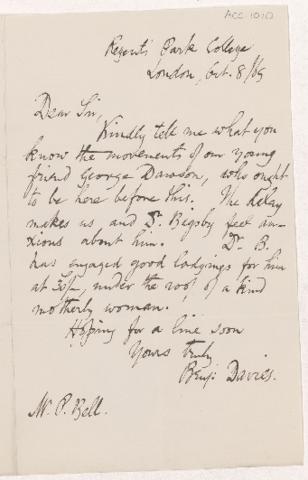 ACC 1010
Regent's Park College,
London, Oct. 8/69
Dear Sir,
Kindly tell me what you
know the movements of our young
friend George Dawson, who ought
to be here before this. The delay
makes us and Dr. Bigsby feel an-
xious about him. Dr. B.
has engaged good lodgings for him
at 30/-, under the roof of a kind
motherly woman.
Hoping for a line soon
Yours truly
Benj. Davies.
Mr. P. Bell.